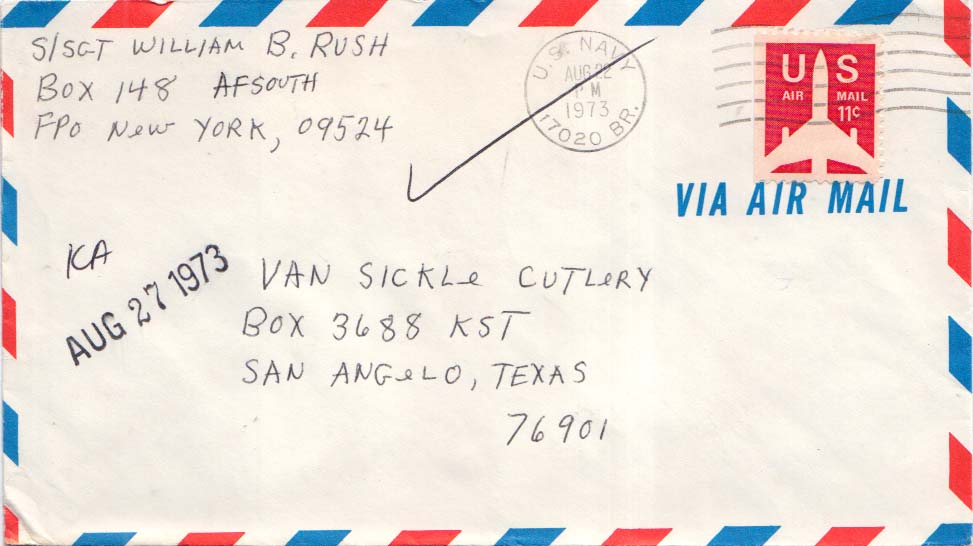 S/SGT WILLIAM B. RUSH
BOX 148 AFSOUTH
FPO New YORK, 09524
U.S. NAVY
AUG 22
PM
1973
17020 BR.
U S
AIR MAIL
11¢
VIA AIR MAIL
KA
AUG 27 1973
VAN SICKLe CUTLeRY
BOX 3688 KST
SAN ANGeLO, TEXAS
76901